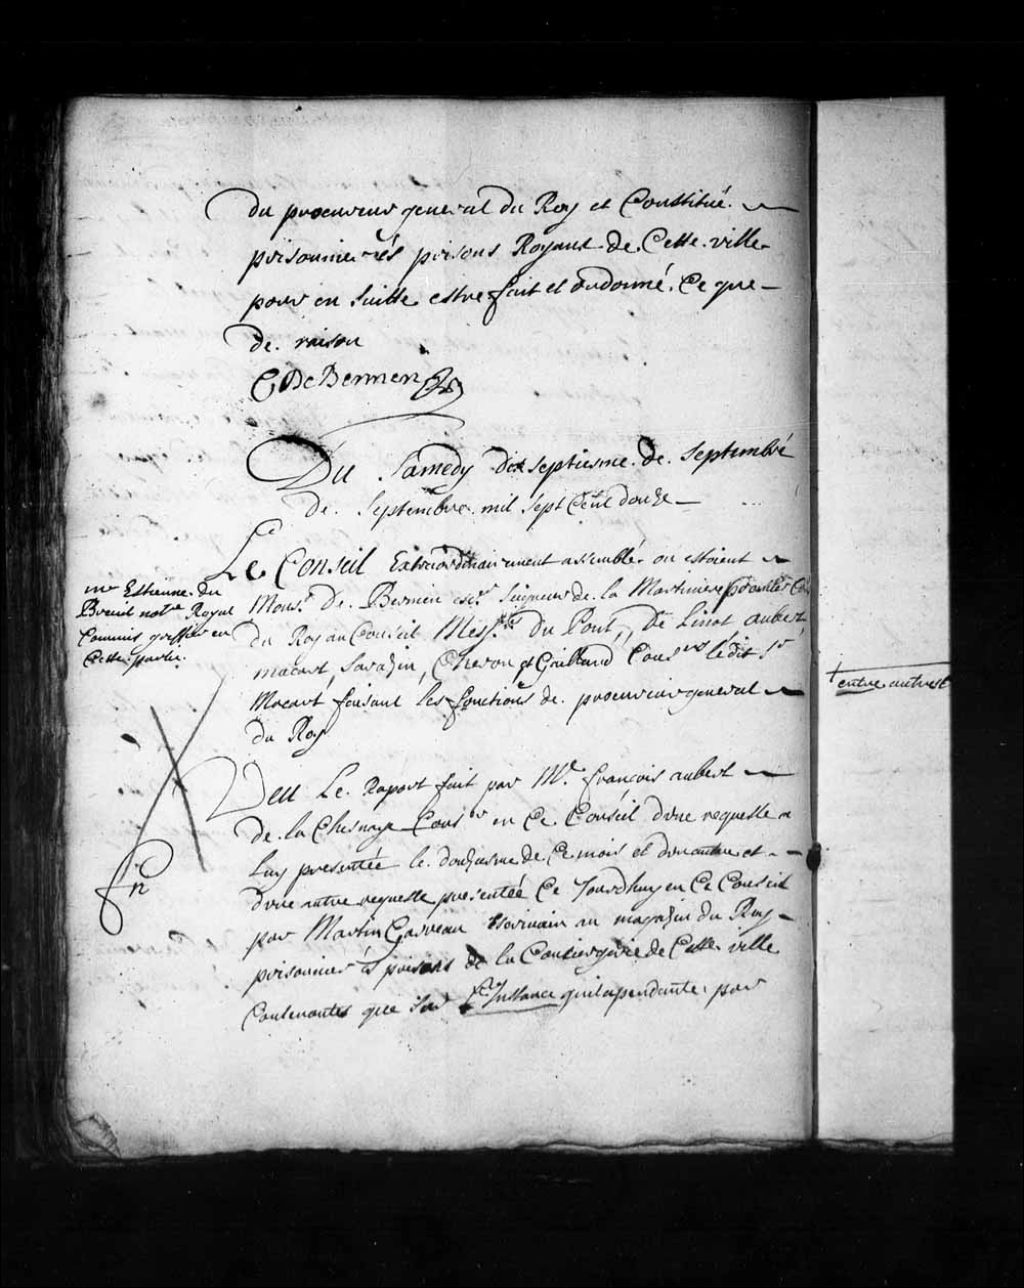 du procureur general du Roy et Constitué
prisonnier és prisons Royaux de Cette ville
pour en suitte estre fait et ordonné Ce que
de raison
C De Bermen
Du Samedy dix septiesme de septembre
de Septembre mil sept Cent douze
Le Conseil Extraordinairement assemblé ou estoient
Monsr. De Bermen escr. seigneur de la Martiniere
du Roy au Conseil Messrs. Du Pont, De Linot aubert
macart, Sarazin, Cheron et Gaillard Cousers ledit Sr
Macart faisant les fonctions de procureur general
du Roy
me Estienne du
Breuil notre Royal
Commis greffier en
Cette partie
+ entre autres
Veu Le Raport fait par Mr. françois aubert
de la Chesnaye Consr en Ce Conseil d'une requeste a
luy presentée le douzieme de Ce mois et
d'une autre requeste presentée Ce Jourdhuy en Ce Conseil
par Martin Garreau Escrivain au magazin du Roy
prisonnier és prisons de la Conciergerie de Cette ville
Contenantes que sur Instance qui est pendante par